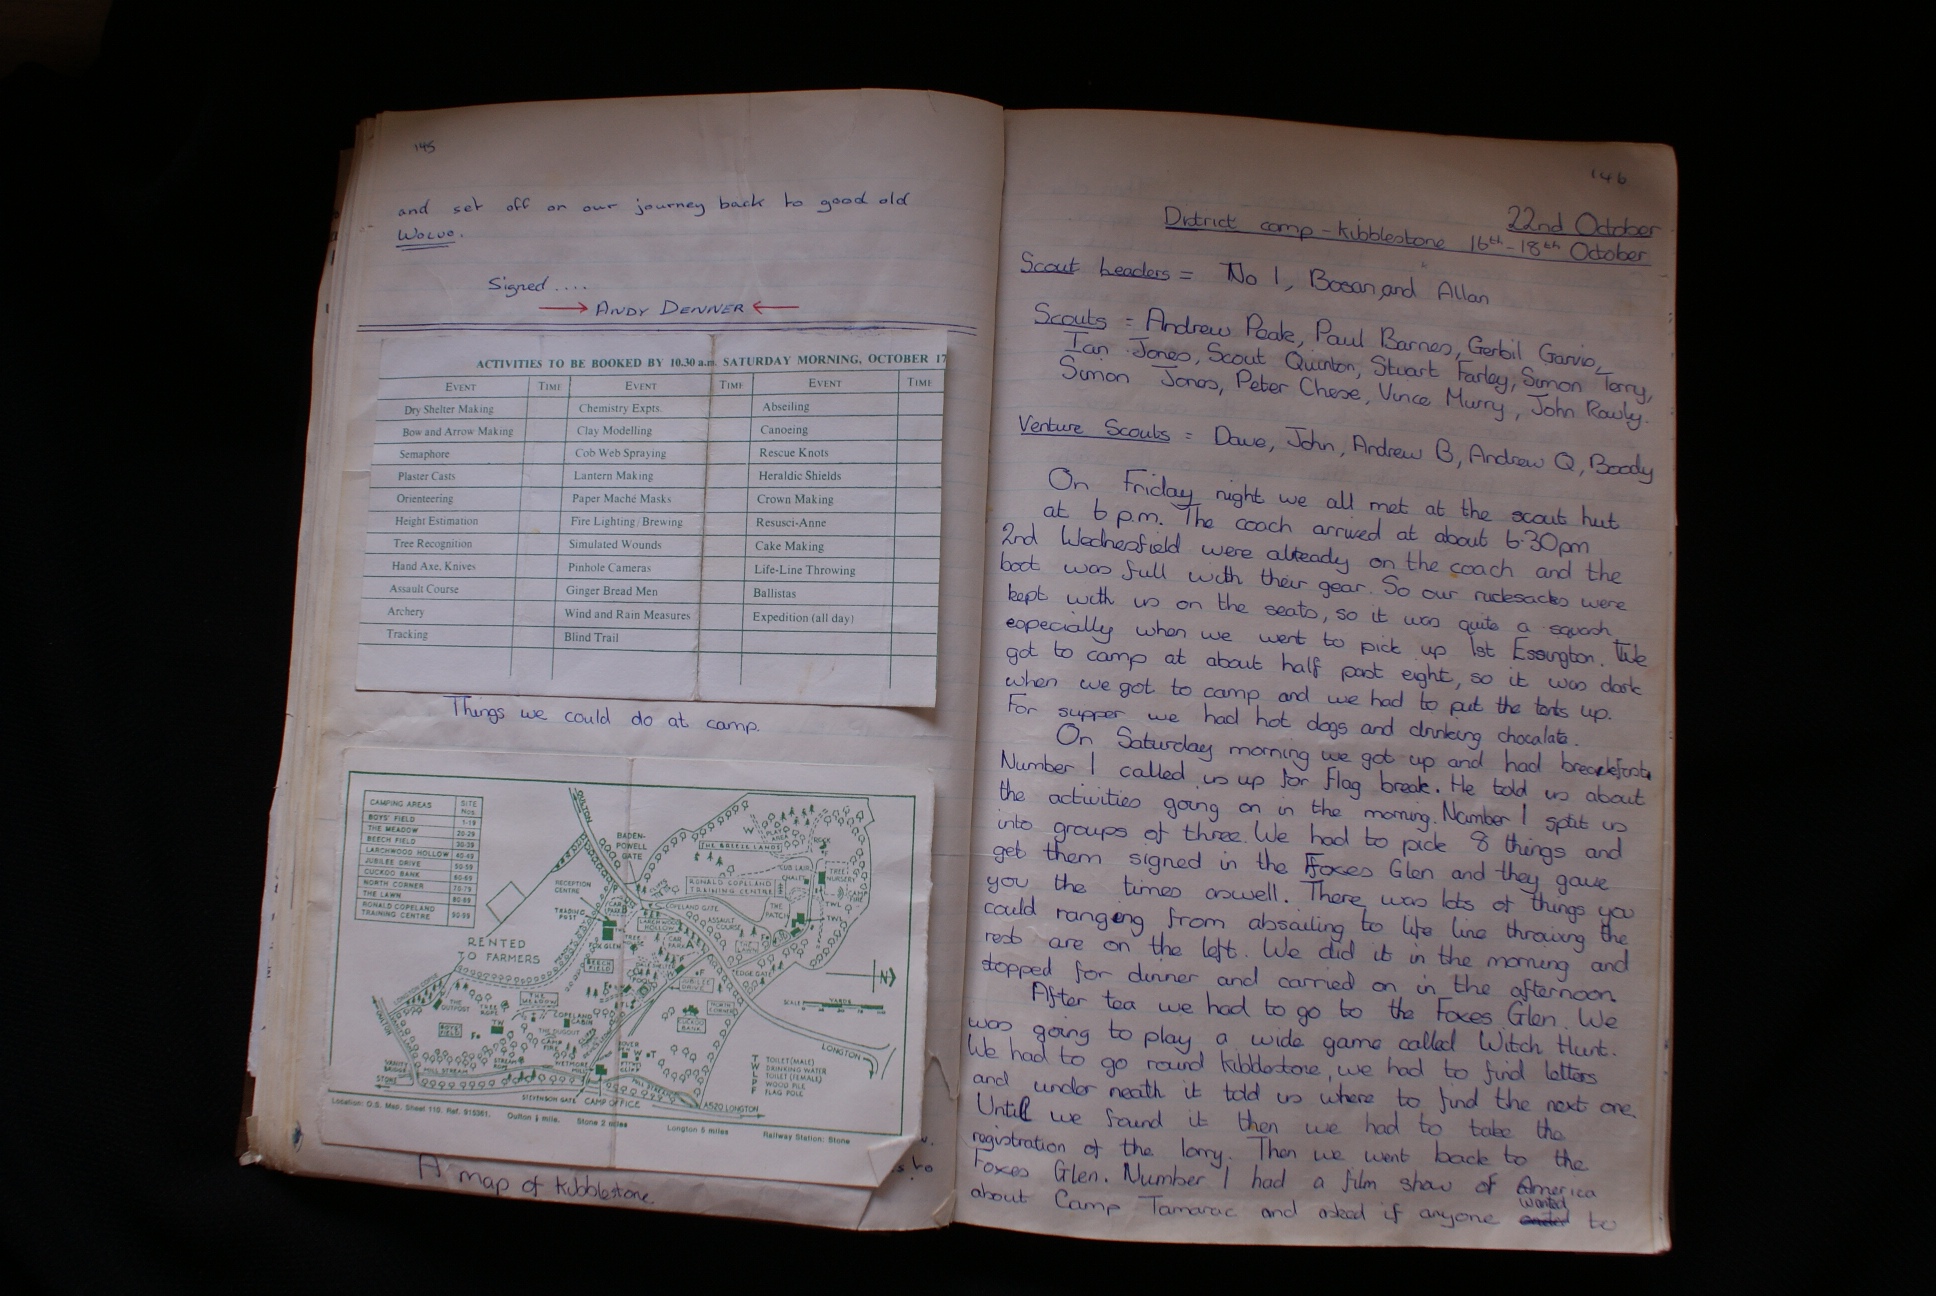 145
and set off on our journey back to good old
Wolvo.
Signed ....
→ ANDY DENNER ←
ACTIVITIES TO BE BOOKED BY 10.30 a.m. SATURDAY MORNING, OCTOBER 17
EVENT TIME EVENT TIME EVENT TIME
Dry Shelter Making Chemistry Expts. Abseiling
Bow and Arrow Making Clay Modelling Canoeing
Semaphore Cob Web Spraying Rescue Knots
Plaster Casts Lantern Making Heraldic Shields
Orienteering Paper Maché Masks Crown Making
Height Estimation Fire Lighting/Brewing Resusci-Anne
Tree Recognition Simulated Wounds Cake Making
Hand Axe, Knives Pinhole Cameras Life-Line Throwing
Assault Course Ginger Bread Men Ballistas
Archery Wind and Rain Measures Expedition (all day)
Tracking Blind Trail
Things we could do at camp.
CAMPING AREAS SITE Nos.
BOYS' FIELD 1-19
THE MEADOW 20-29
BEECH FIELD 30-39
LARCHWOOD HOLLOW 40-49
JUBILEE DRIVE 50-59
CUCKOO BANK 60-69
NORTH CORNER 70-79
THE LAWN 80-89
RONALD COPELAND
TRAINING CENTRE 90-99
OULTON
BADEN-
POWELL
GATE
THE BREEZE LANDS
PLAY
AREA
RONALD COPELAND
TRAINING CENTRE
TREE
NURSERY
RECEPTION
CENTRE
TRADING
POST
CAR
PARK
COPELAND GATE
LARCHWOOD
HOLLOW
ASSAULT
COURSE
THE
PATCH
TWL
TWL
FOX GLEN
CAR
PARK
RENTED
TO FARMERS
BEECH
FIELD
EDGE GATE
JUBILEE
DRIVE
N
SCALE YARDS
THE
OUTPOST
TREE
ROPE
THE
MEADOW
COPELAND
CABIN
NORTH
CORNER
CUCKOO
BANK
BOYS
FIELD
TW
THE DUGOUT
CAMP
FIRE
OULTON
LONGTON
STREAM
ROPE
WETMORE
MILL
STONE
MILL STREAM
MILL STREAM
STEVENSON GATE CAMP OFFICE
A520 LONGTON
T TOILET (MALE)
W DRINKING WATER
L TOILET (FEMALE)
P WOOD PILE
F FLAG POLE
Location: O.S. Map, Sheet 110. Ref. 915361. Oulton ½ mile. Stone 2 miles Longton 5 miles Railway Station: Stone
A map of Kibblestone.
146
22nd October
District camp - Kibblestone 16th - 18th October
Scout Leaders = No 1, Bosan, and Allan
Scouts = Andrew Peake, Paul Barnes, Gerbil Garvis,
Ian Jones, Scout Quinton, Stuart Farley, Simon Terry,
Simon Jones, Peter Chese, Vince Murry, John Rawly.
Venture Scouts = Dave, John, Andrew B, Andrew Q, Boody
On Friday night we all met at the scout hut
at 6 p.m. The coach arrived at about 6.30pm
2nd Wednesfield were already on the coach and the
boot was full with their gear. So our rucksacks were
kept with us on the seats, so it was quite a squash
especially when we went to pick up 1st Essington. We
got to camp at about half past eight, so it was dark
when we got to camp and we had to put the tents up.
For supper we had hot dogs and drinking chocalate.
On Saturday morning we got up and had breackfast.
Number 1 called us up for flag break. He told us about
the activities going on in the morning. Number 1 split us
into groups of three. We had to pick 8 things and
get them signed in the Foxes Glen and they gave
you the times aswell. There was lots of things you
could ranging from absailing to life line throwing the
rest are on the left. We did it in the morning and
stopped for dinner and carried on in the afternoon.
After tea we had to go to the Foxes Glen. We
was going to play a wide game called Witch Hunt.
We had to go round Kibblestone, we had to find letters
and under neath it told us where to find the next one.
Until we found it then we had to take the
registration of the lorry. Then we went back to the
Foxes Glen. Number 1 had a film show of America
about Camp Tamarac and asked if anyone wanted to